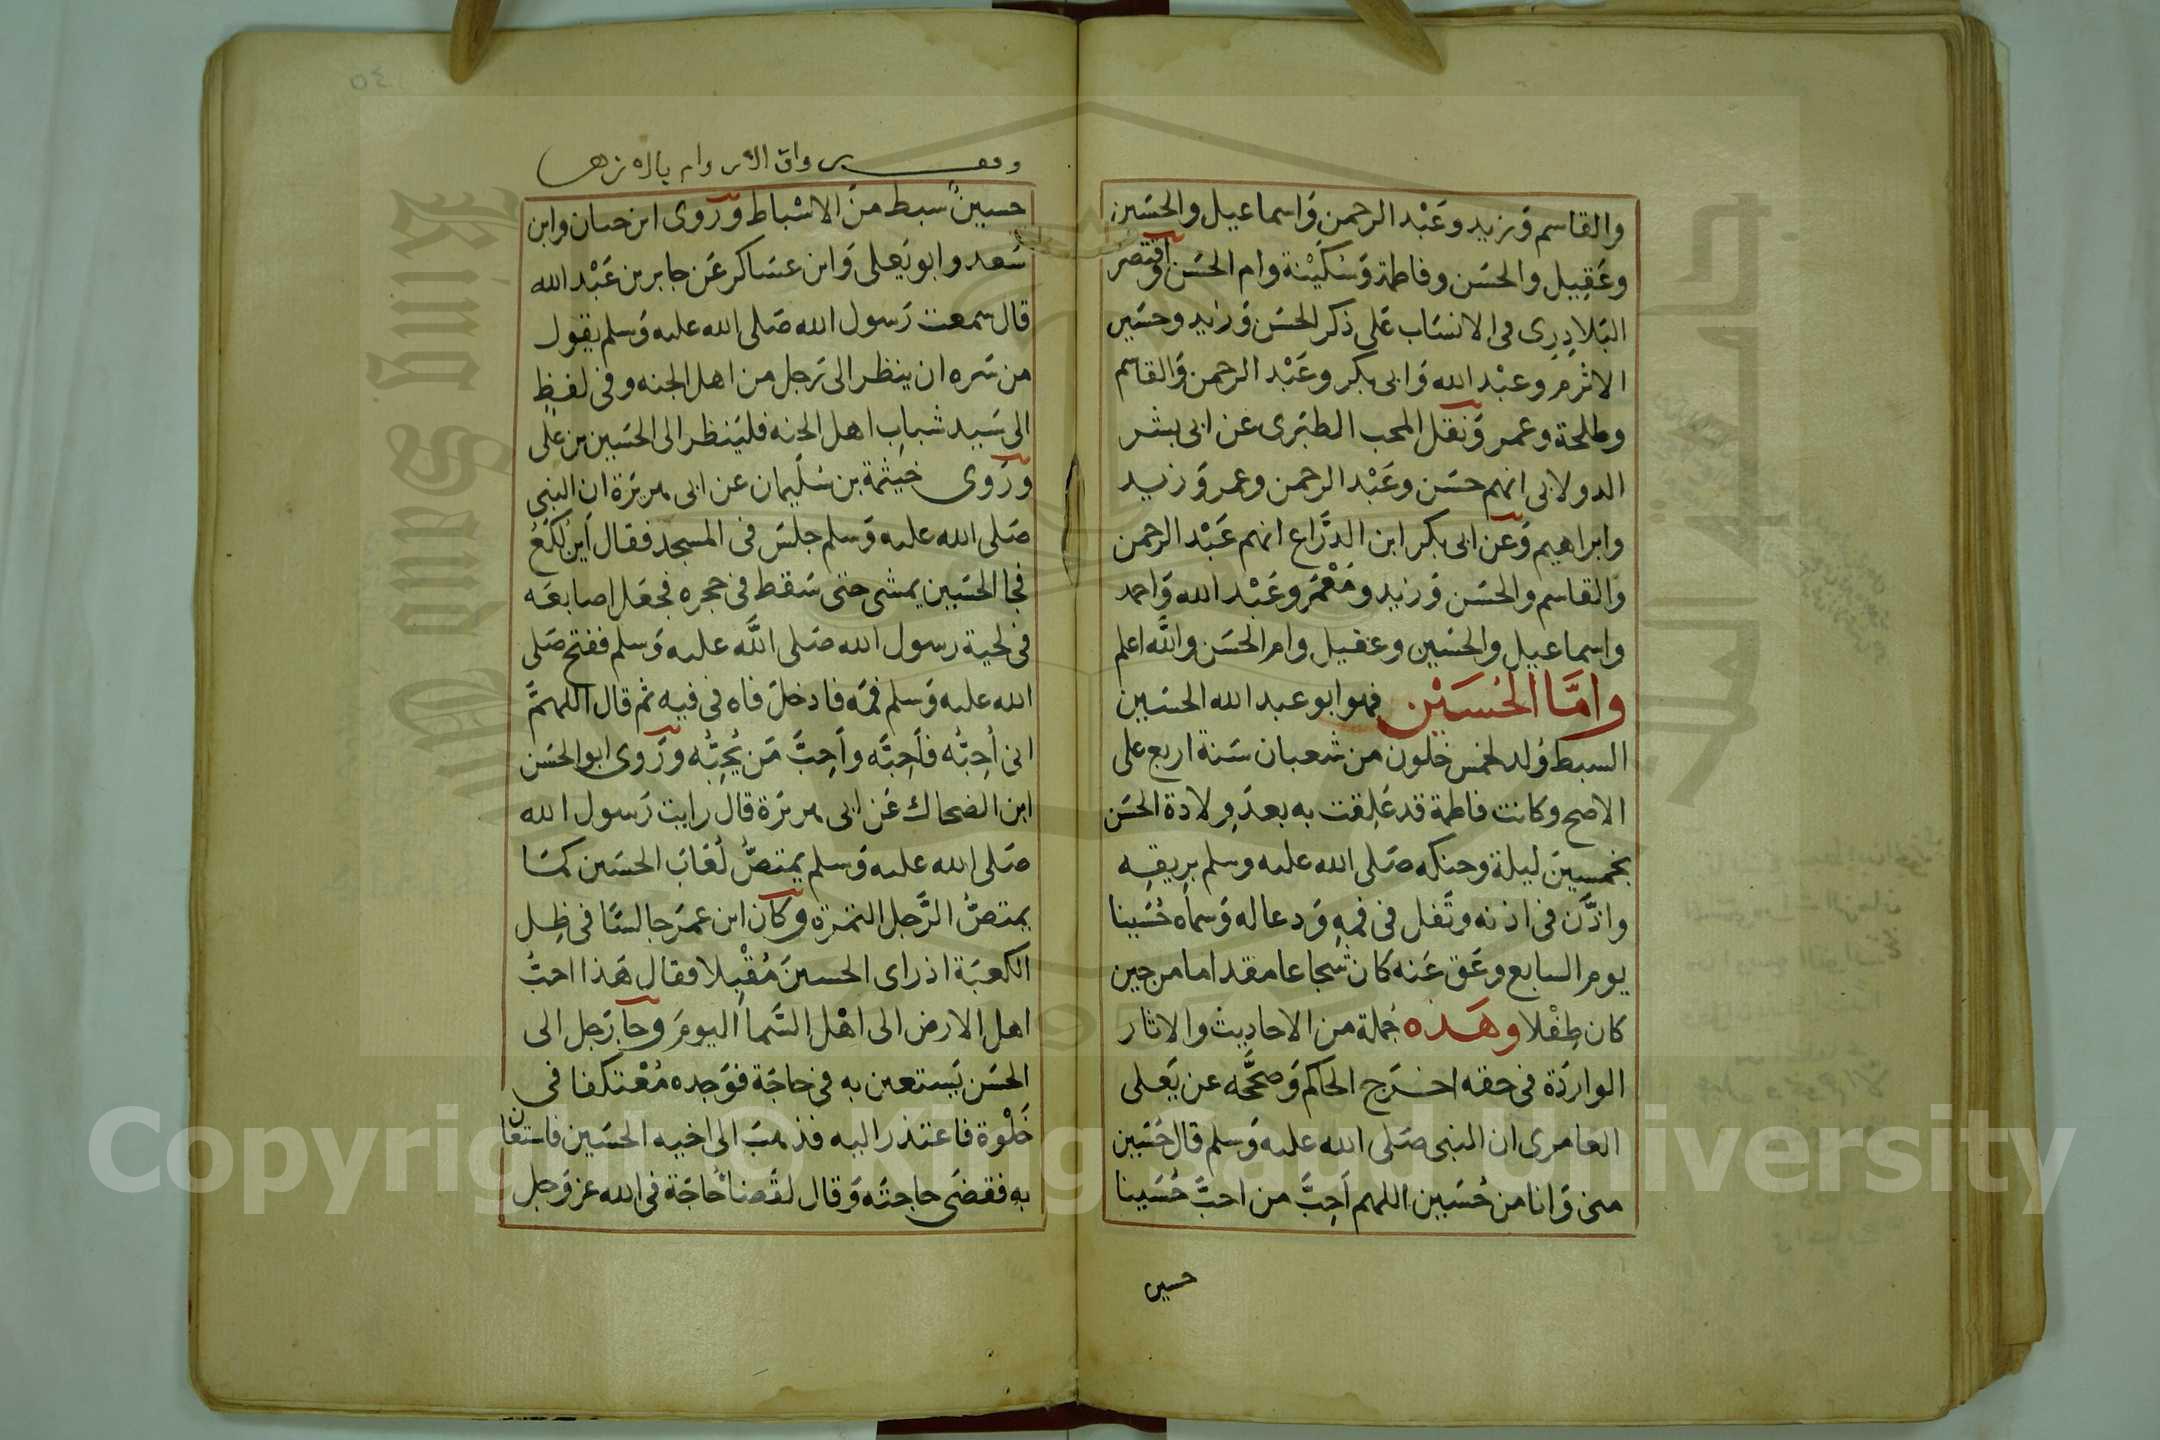 والقاسم وَزيد وعَبْد الرحمن وَاسماعيل والحسَين
وعَقِيل والحسَن وفاطمة وَسُكَيْنة وام الحسَن واقتصَر
البَلاذِرِى فى الانسَاب عَلى ذكر الحسَن وَزيد وحسَين
الاثرم وعبْد الله وَابى بكر وعَبْد الرحمن وَالقاسم
وطلحة وعمر وَنقل المحب الطبَرى عَن ابى بشر
الدولابى انهم حسَن وعَبْد الرحمن وعمر وَزيد
وابراهيم وَعن ابى بكر ابن الدَّرَاع انهم عَبْد الرحمن
وَالقاسم والحسَن وَزيد ومَعْمَر وعَبْد الله وَاحمد
واسماعيل والحسَين وعقيل وام الحسَن واللَّه اعلم
وامَّا الحُسَيْن فهو ابو عبد الله الحسَين
السبط وُلد لخمس خلون من شعبان سَنة اربع على
الاصح وكانت فاطمة قد عَلِقت به بعدَ وِلادة الحسَن
بخمسينَ ليلة وحنكه صَلى الله عليه وسلم بِريقِه
واذَّن فى اذنه وتَفل فى فمِهِ وَدعا له وَسماه حُسَينا
يوم السابع وعَق عَنه كانَ شجاعا مقداما من حين
كان طِفْلا وهَذه جُملة من الاحاديث والاثار
الواردَة فى حقه اخرَج الحاكم وَصحَّحَه عن يَعلى
العامرى ان النبى صَلى الله عليه وَسلم قال حُسَين
منى وَانا من حُسَين اللهم اَحِبَّ من احبَّ حُسَينا
حسين
حسينٌ سبط منَ الاسْباط وَرَوى ابن حبان وابن
سَعد وابو يَعلى وَابن عسَاكر عَن جابر بن عَبْد الله
قال سمعت رَسول الله صَلى الله عليه وَسلم يقول
من سَره ان ينظر الى رَجل من اهل الجنه وفى لفظٍ
الى سَيد شبابِ اهل الجنه فليَنظر الى الحسَين بن على
ورَوى خيثمة بن سُلَيمان عن ابى هريرَة ان النبى
صَلى الله عليه وَسلم جلسَ فى المسجد فقال اَين لُكَعُ
فجا الحسَين يمشى حتى سَقط فى حجره فجعَل اصابعَه
فى لحية رسول الله صَلى اللَّه عليه وَسلم ففتح صَلى
الله عليه وَسلم فمَه فادخل فاه فى فيه ثم قال اللهمَّ
انى اُحِبُّه فاَحِبَّه واَحِبَّ مَن يُحِبُّه ورَوى ابو الحسَن
ابن الضحاك عَن ابى هريرَة قال رايت رَسول الله
صَلى الله عليه وَسلم يمتصُّ لُعَابَ الحسَين كمَا
يمتصُّ الرَّجل التمرَه وكان ابن عمَر جالسًا فى ظِل
الكعبَة اذ راى الحسينَ مُقْبِلا فقال هَذا احبُّ
اهل الارض الى اهْل السَّما اليومَ وجا رَجل الى
الحسَن يَستعين به فى حاجَة فوَجده مُعْتكفا فى
خَلْوة فاعتذر اليه فذهبَ الى اخيه الحسَين فاستعان
به فقضَى حاجتَه وَقال لقضَاءُ حَاجَة فى الله عز وَجل
Copyright © King Saud University
King Saud University